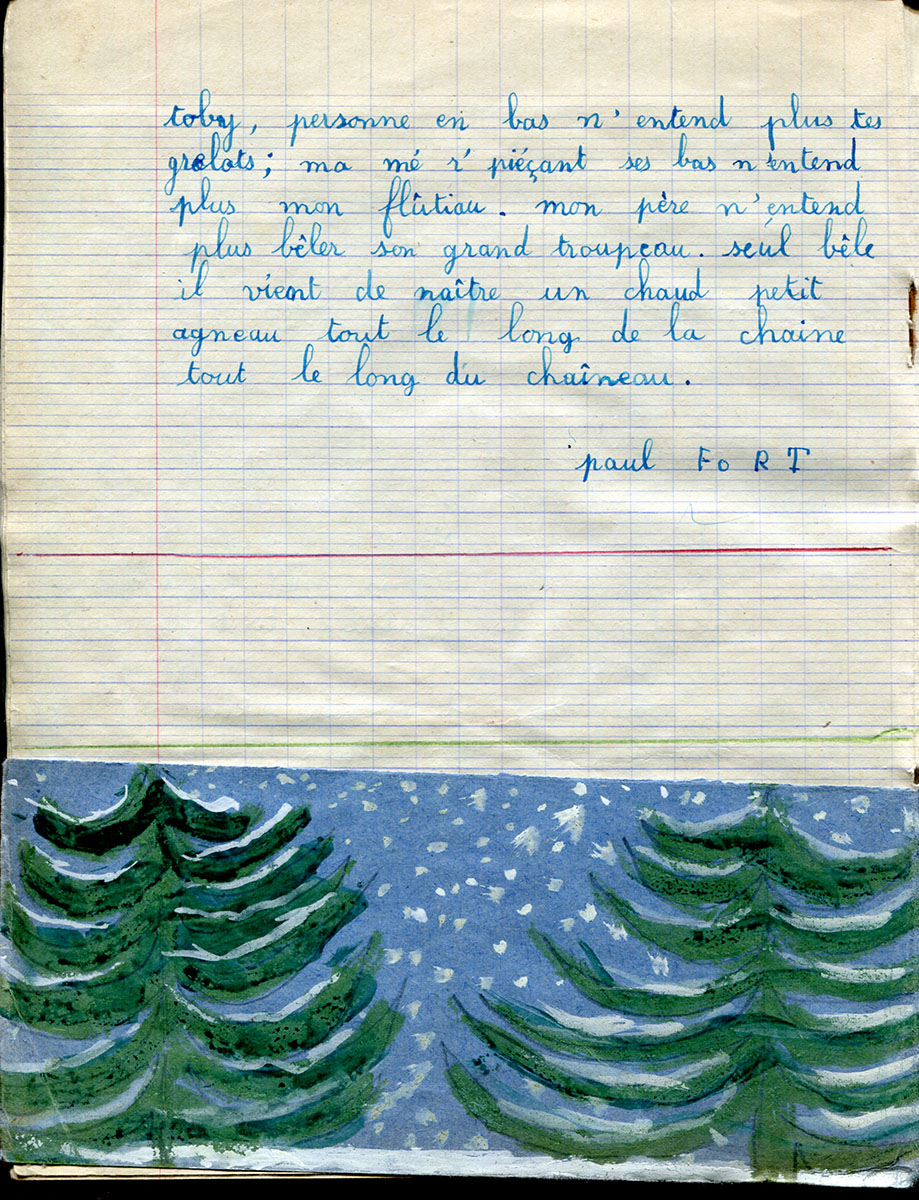 toby, personne en bas n'entend plus tes
grelots; ma mé r'pièçant ses bas n'entend
plus mon flûtiau. mon père n'entend
plus bêler son grand troupeau. seul bêle
il vient de naître un chaud petit
agneau tout le long de la chaine
tout le long du chaîneau.
paul FoRT